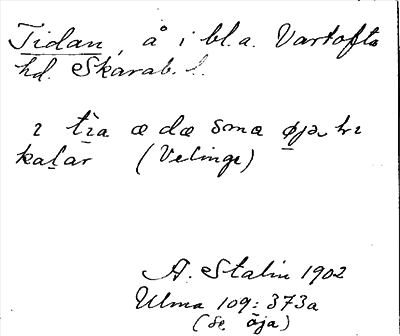 Tidan, å i bl.a. Vartofta
hd. Skarab. l.
ɪ tɪa æ dæ sma øja hɪ
kaḷar (Velinge)
A. Stalin 1902
Ulma 109: 373a
(se öja)